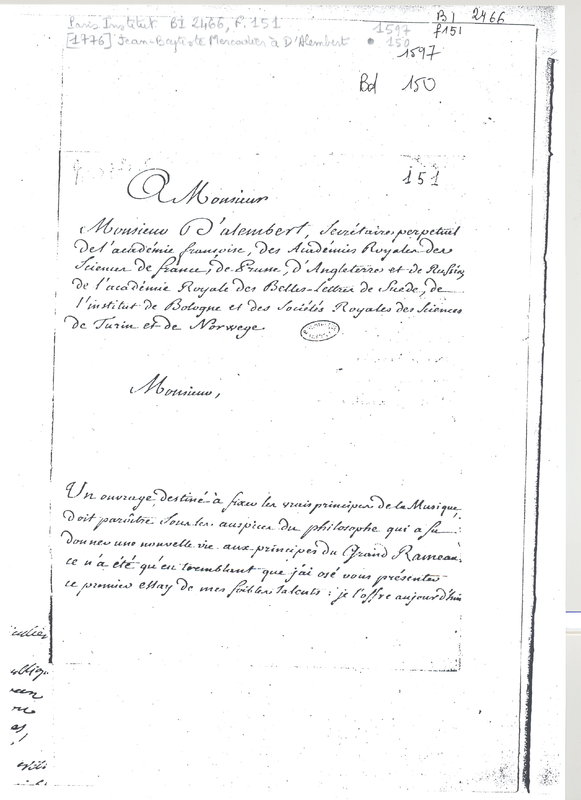 Paris Institut BI 2466, F. 151
[1776] Jean-Baptiste Mercadier à D'Alembert
BI 2466
f151
1597
150
1597
Bd 150
151
A Monsieur
Monsieur D'alembert, Secrétaire perpetuel
de l'académie françoise, des Académies Royales des
Sciences de france, de Prusse, d'Angleterre et de Russie,
de l'académie Royale des Belles-Lettres de Suède, de
l'institut de Bologne et des Sociétés Royales des Sciences
de Turin et de Norwege
Monsieur,
Un ouvrage destiné à fixer les vrais principes de la Musique,
doit paroître sous les auspices du philosophe qui a su
donner une nouvelle vie aux principes du Grand Rameau.
ce n'a été qu'en tremblant que j'ai osé vous présenter
ce premier essay de mes foibles talents : je l'offre aujourd'hui